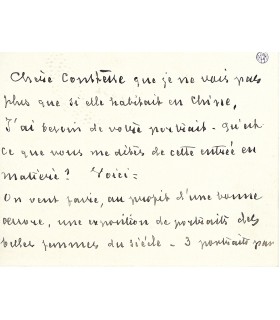 Chère Comtesse que je ne vois pas
plus que si elle habitait en Chine,
J'ai besoin de votre portrait - qu'est
ce que vous me dites de cette entrée en
matière ? Voici =
On veut faire, au profit d'une bonne
œuvre, une exposition de portraits des
belles femmes du siècle - 3 portraits par